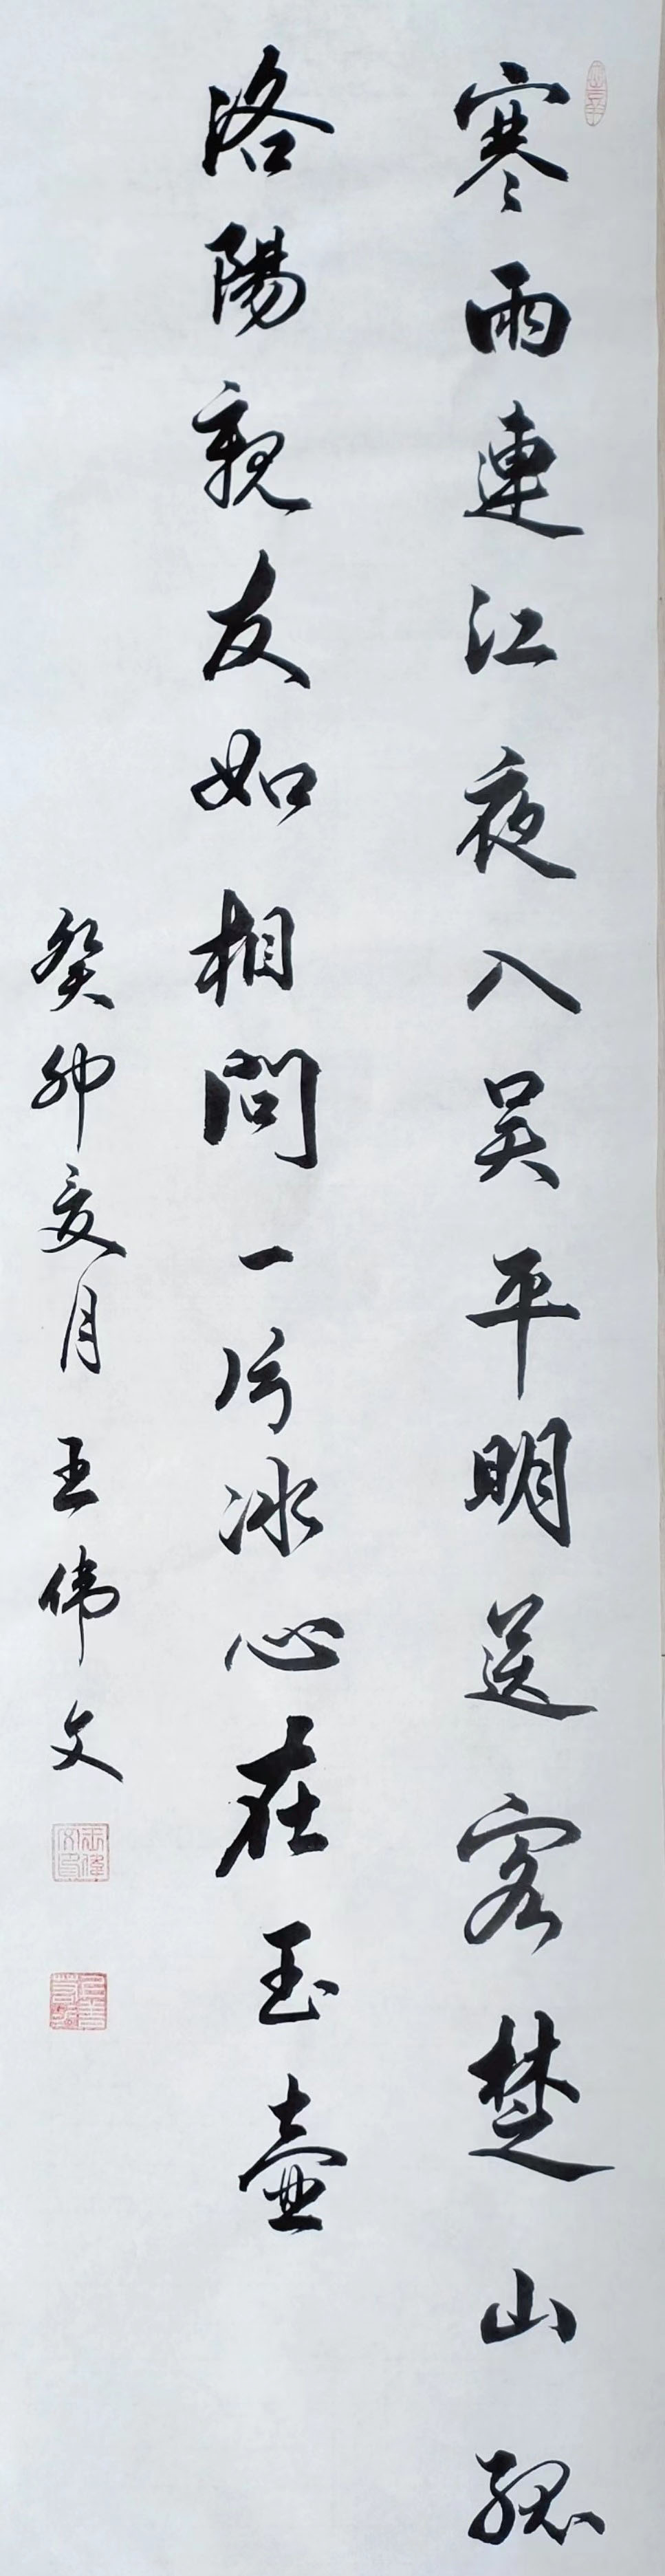 寒雨連江夜入吴平明送客楚山孤
洛陽親友如相問一片冰心在玉壶
癸卯夏月王伟文